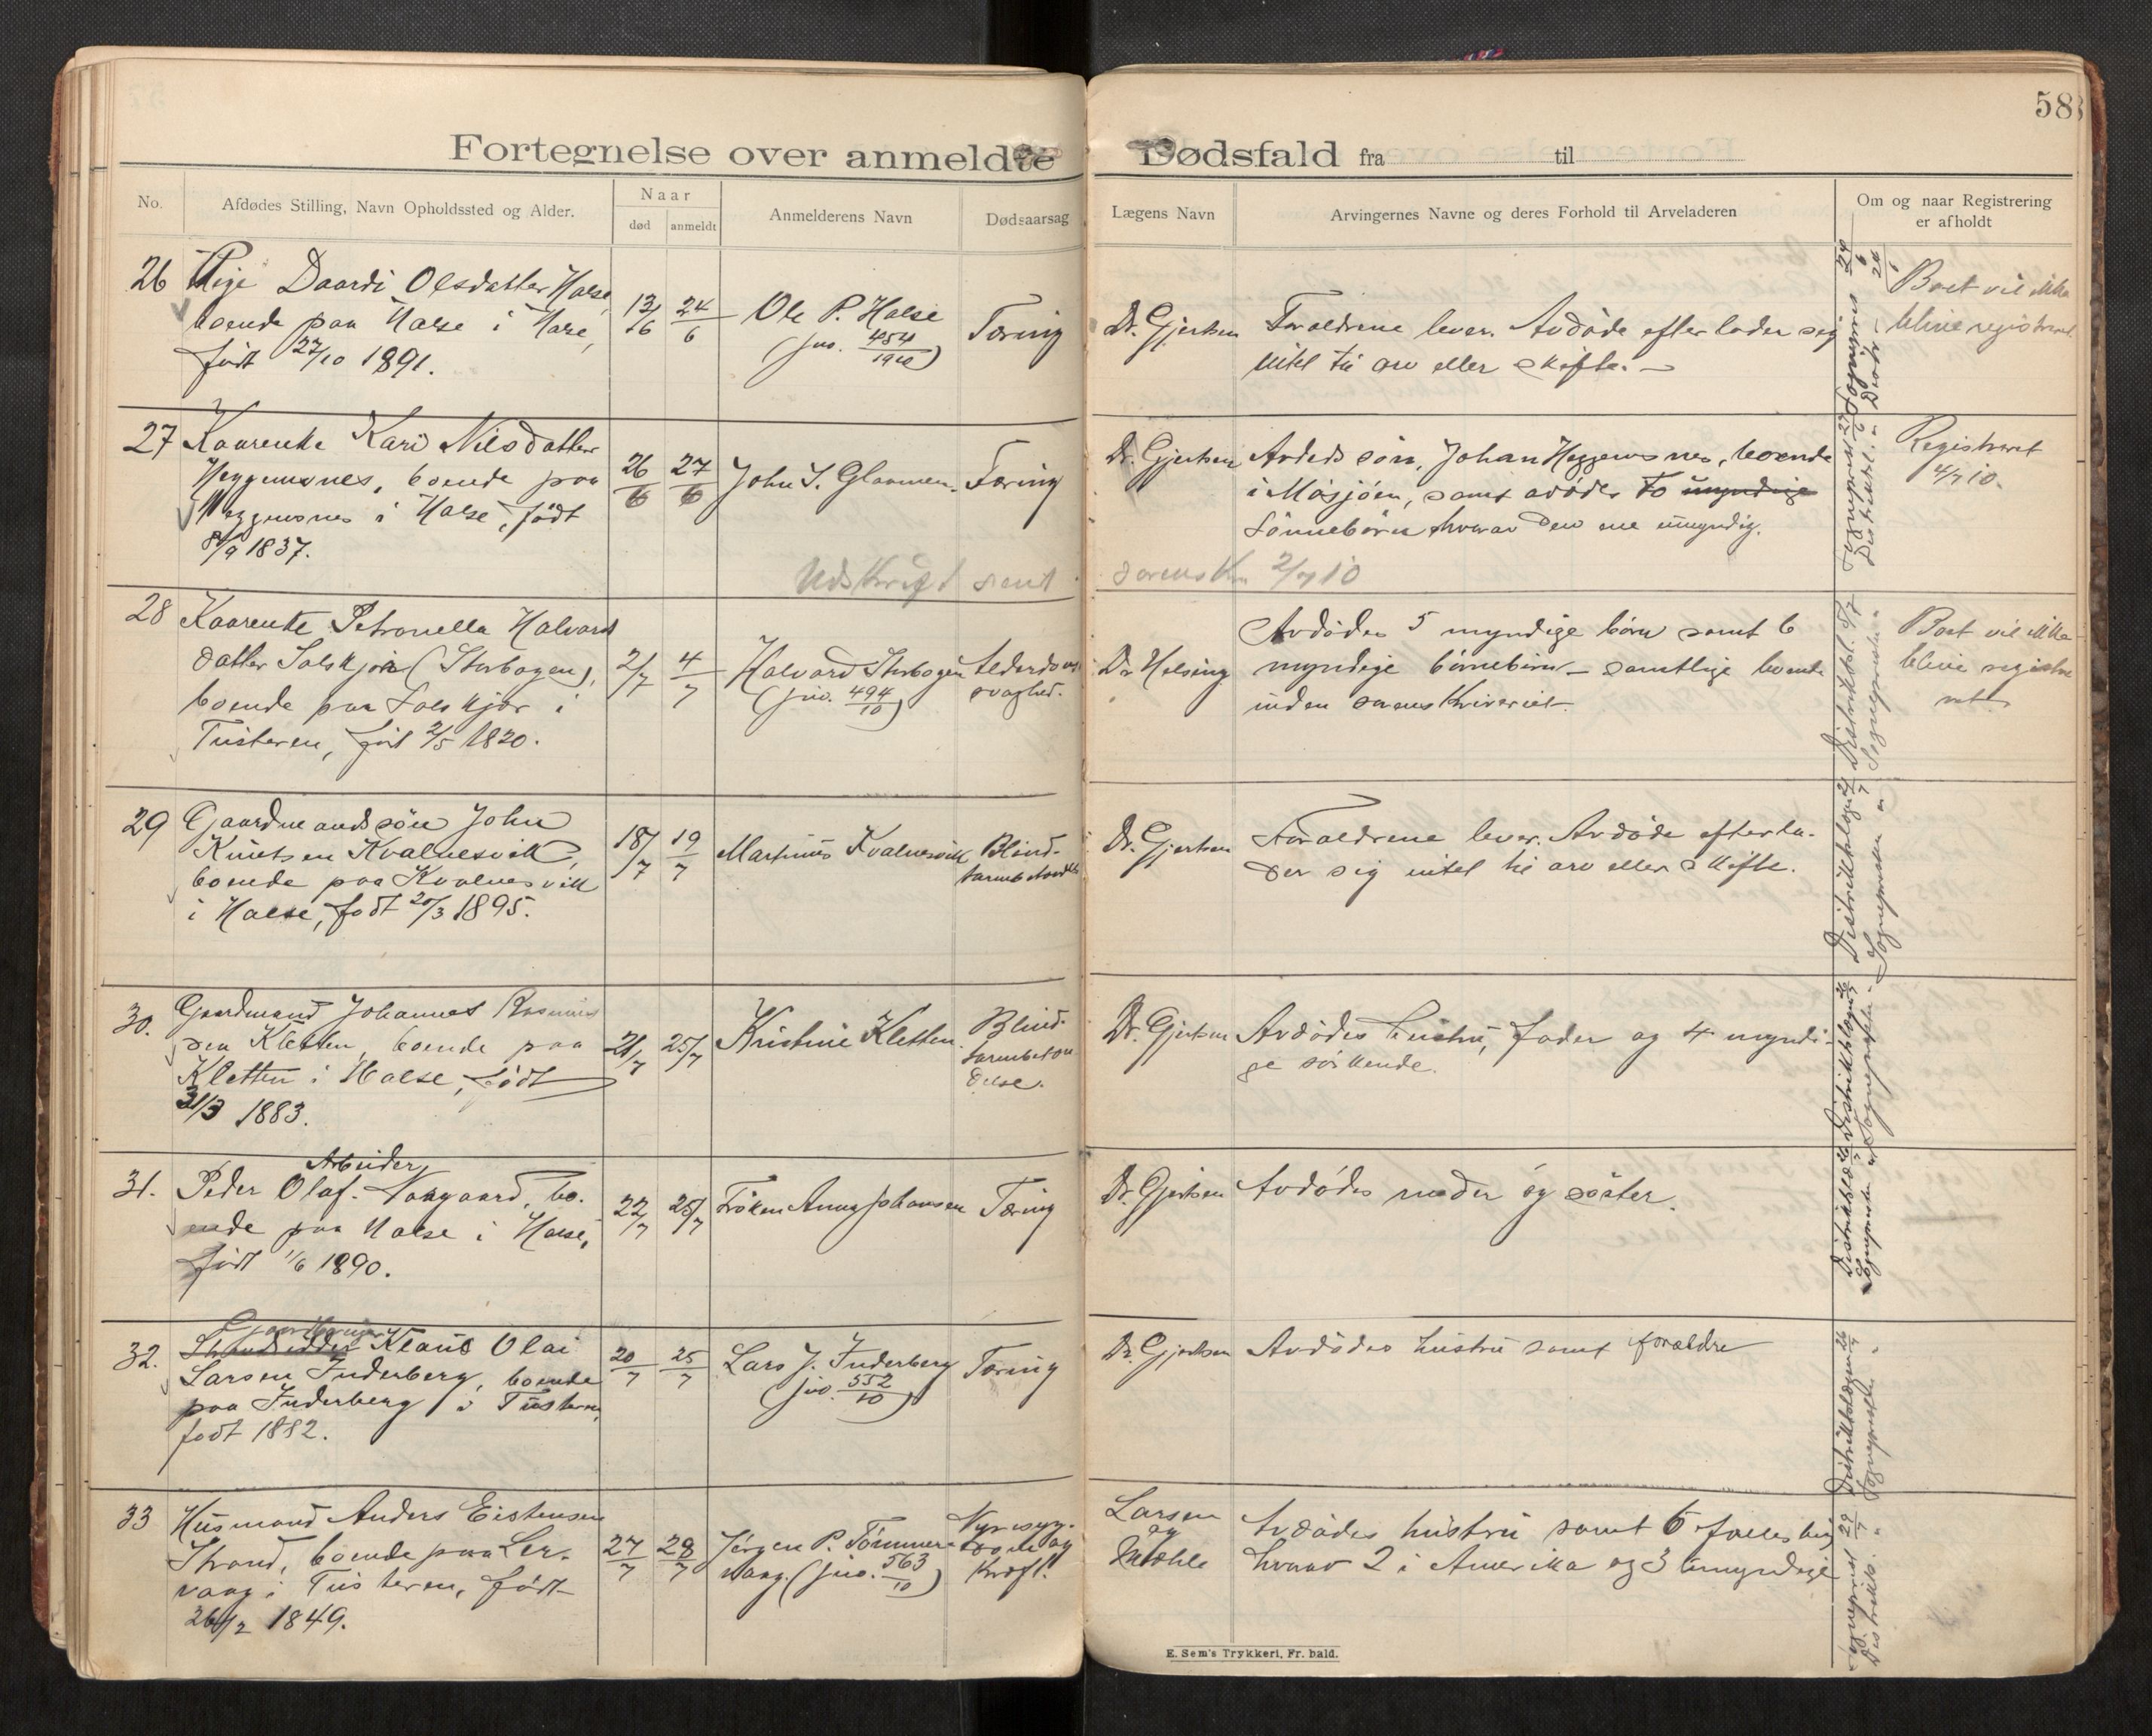 58
Fortegnelse over anmeldte Dødsfald fra til
No.
Afdødes Stilling, Navn Opholdssted og Alder.
Naar
død
anmeldt
Anmelderens Navn
Dødsaarsag
Lægens Navn
Arvingernes Navne og deres Forhold til Arveladeren
Om og naar Registrering
er afholdt
26 Pige Daardi Olsdatter Halse,
boende paa Halse i Halse,
født 27/10 1891.
13/6
24/6
Ole P. Halse
(jno. 454/1910)
Tæring
Dr. Gjertsen
Foraldrene lever. Avdøde efterlader sig
intet til arv eller skifte. —
Boet vil ikke
blive registreret.
27 Kaarenke Kari Nilsdatter
Heggemsnes, boende paa
Heggemsnes i Halse, født
8/9 1837.
26/6
27/6
John S. Glaamen.
Tæring
Dr. Gjertsen
Avdødes søn, Johan Heggemsnes, boende
i Mosjøen, samt avdødes to umyndige
sønnebørn hvorav den ene umyndig.
Registreret
4/7 10.
Udskrift sent
sorenskr. 2/7 10
28 Kaarenke Petronella Halvards
datter Solskjør (Storbogen),
boende paa Solskjør i
Tusteren, født 2/5 1820.
2/7
4/7
Halvard Storbogen
(jno. 494/10)
Alderdoms
svaghed.
Dr Helsing
Avdødes 5 myndige børn samt 6
myndige børnebørn — samtlige boende
inden sorenskriveriet.
Boet vil ikke
blive registre
ret.
29 Gaardmandssøn John
Knutsen Kvalnesvik,
boende paa Kvalnesvik
i Halse, født 20/3 1895.
18/7
19/7
Martinus Kvalnesvik
Blind-
tarmbetændelse
Dr. Gjertsen
Foraldrene lever. Avdøde efterla-
der sig intet til arv eller skifte.
30. Gaardmand Johannes Rasmus
sen Kletten, boende paa
Kletten i Halse, født
31/3 1883.
21/7
25/7
Kristine Kletten.
Blind-
tarmbetæn
delse.
Dr. Gjertsen
Avdødes hustru, fader og 4 myndi-
ge søskende.
31. Arbeider
Peder Olaf. Naagaard, bo-
ende paa Halse i Halse,
født 11/6 1890.
22/7
25/7
Frøken Anna Johansen
Tæring
Dr. Gjertsen
Avdødes moder og søster.
32. Gaardbruger
Strandsidder Klaus Olai
Larsen Inderberg, boende
paa Inderberg i Tusteren,
født 1882.
20/7
25/7
Lars J. Inderberg
(jno. 552/10)
Tæring
Dr. Gjertsen
Avdødes hustru samt forældre
33 Husmand Anders Eistensen
Strand, boende paa Ler-
vaag i Tusteren, født
26/2 1849.
27/7
28/7
Jørgen P. Tømmer-
vaag. (jno. 563/10)
Nyresyg-
dom og
Kræft.
Larsen
og
Mæhle
Avdødes hustru samt 6 fælles børn
hvorav 2 i Amerika og 3 umyndige
E. Sem's Trykkeri, Fr. hald.